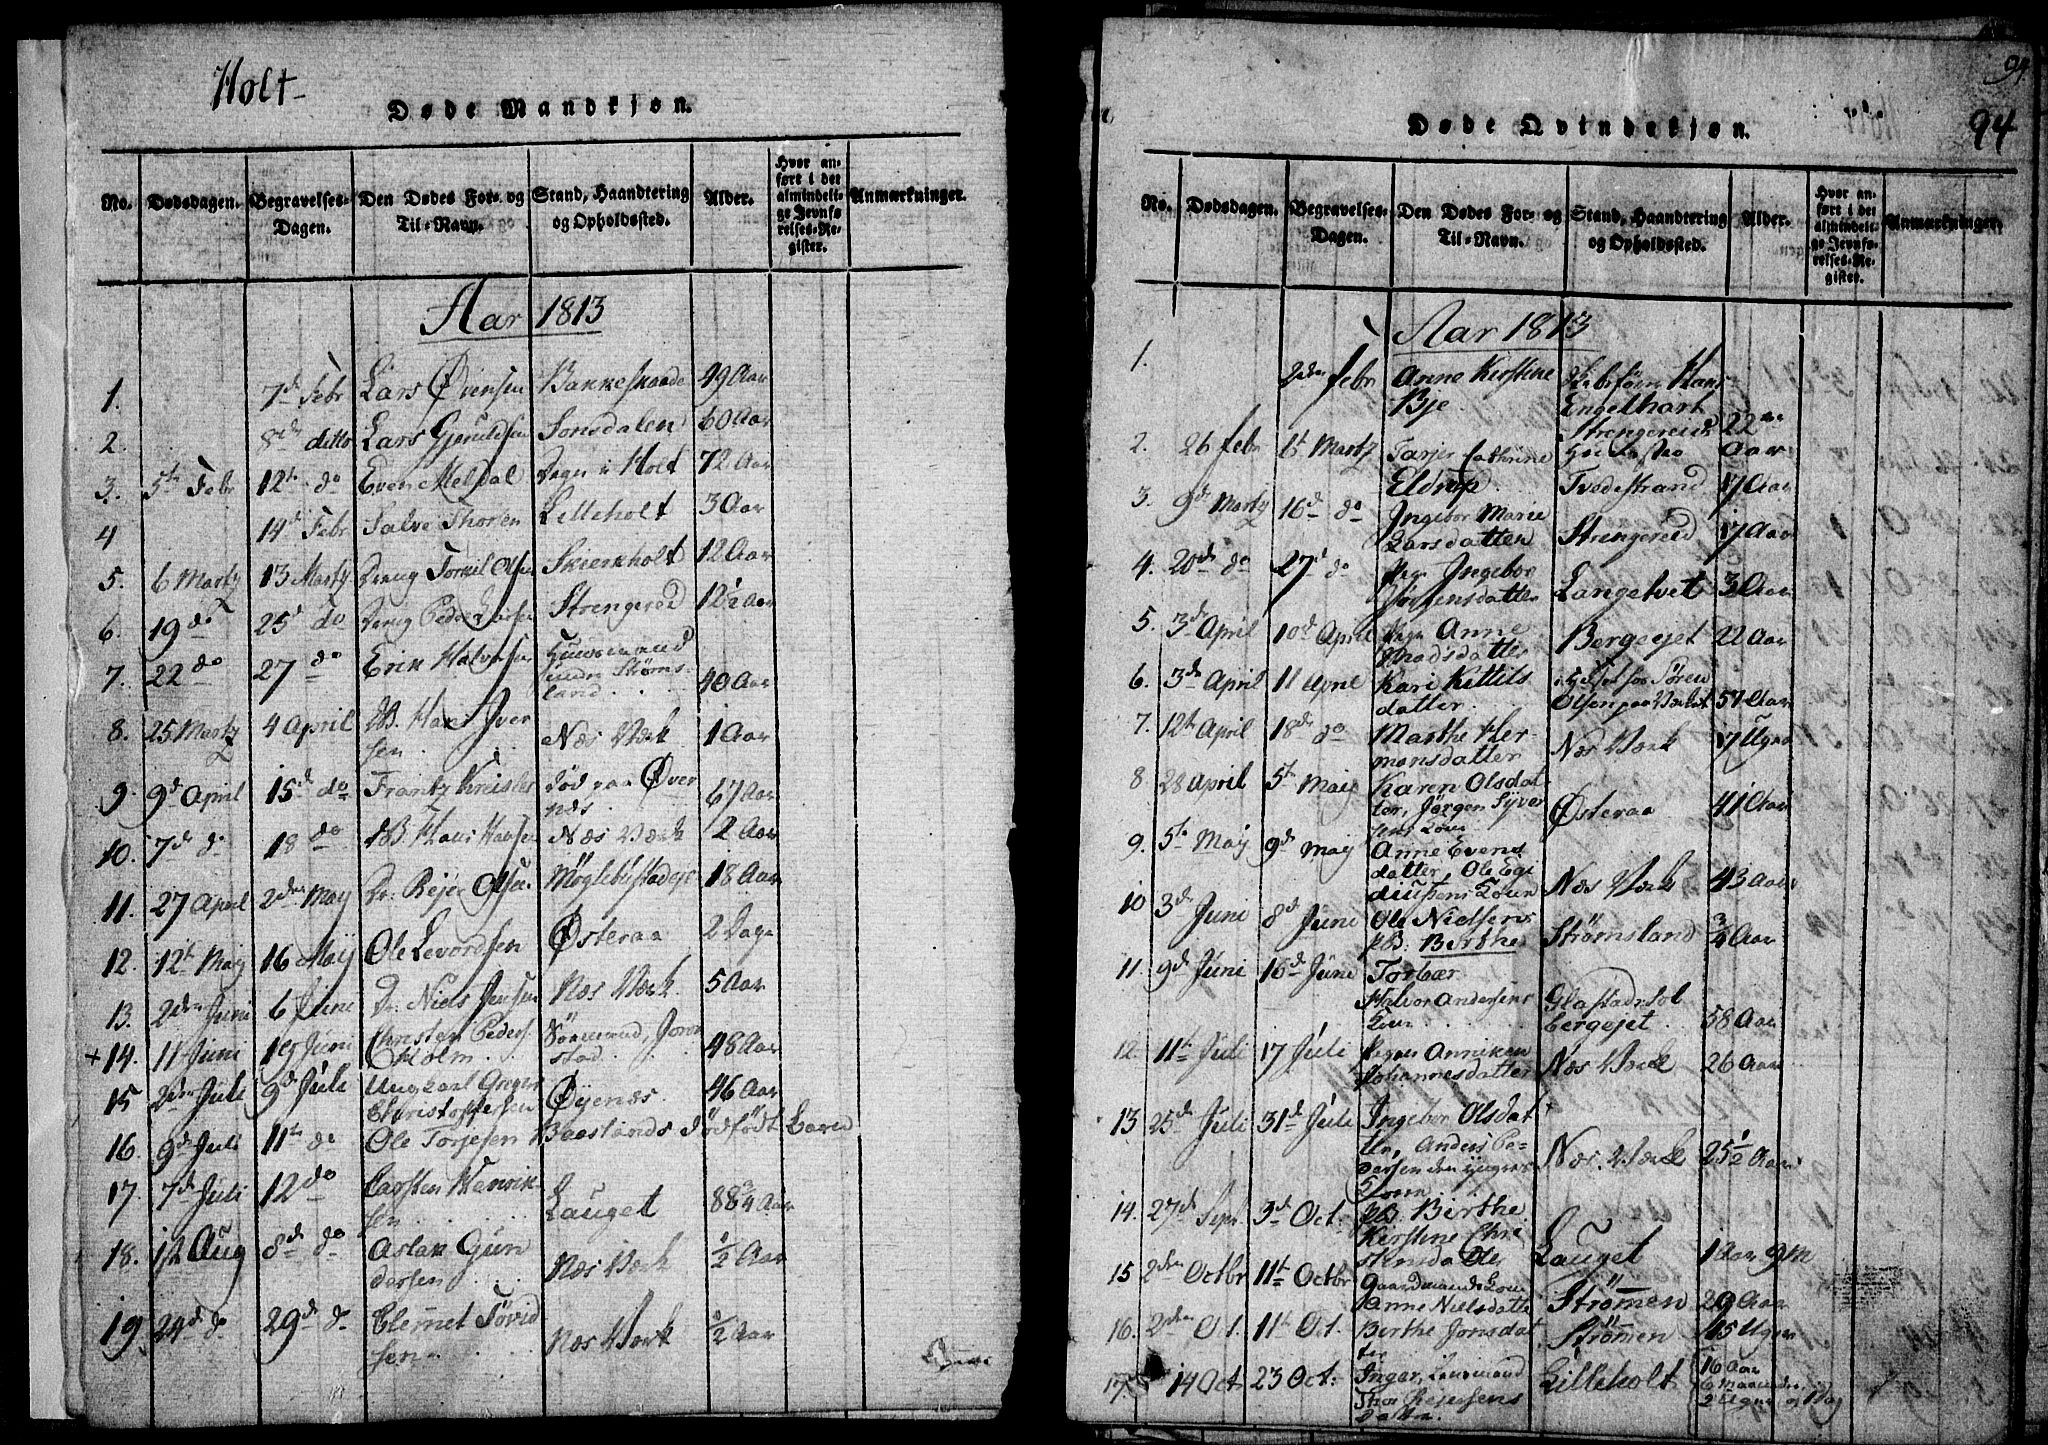 Holt
Døde Mandkjøn.
No. Dødsdagen. Begravelses-Dagen. Den Dødes For- og Til-Navn. Stand, Haandtering og Opholdssted. Alder. Hvor anført i det almindelige Jevnførelses-Register. Anmærkninger.
Aar 1813
1. 7d Febr Lars Øvensen Bakkeskaade 49 Aar
2. 8de ditto Lars Gjeruldsen Sonsdalen 60 Aar
3. 5te Febr 12te do Even Meldal Degn i Holt 72 Aar
4 14de Febr Salve Thorsen Lilleholt 3 Aar
5. 6 Martz 13 Martz Dreng Torkil Olsen Skierkholt 12 Aar
6. 19 do 25d do Dreng Peder Larsen Strengerød 12½ Aar
7. 22 do 27 do Erik Halvorsen Huusmand under Strøms-
land 40 Aar
8. 25 Martz 4 April PB. Hans Iver
sen Næs Værk 1 Aar
9. 9d April 15d do Frantz Knisler død paa Øver
næs 67 Aar
10. 7d do 18 do PB Hans Hansen Næs Værk 2 Aar
11. 27 April 2den May Dr. Rejer Olsen Møglebustadeje 18 Aar
12. 12te May 16 May Ole Levordsen Østeraa 2 Dage
13. 2den Juni 6 June Dr. Niels Jensen Næs Værk 5 Aar
+ 14. 11 Juni 19 Juni Christen Peders
Holm Sømand, Jora
stad 48 Aar
15 2den Juli 9d Juli Ungkarl Greger
Christophersen Øyenæs 46 Aar
16. 9d Juli 11te do Ole Torjesen Baaslands dødfødt Barn
17. 7d Juli 12 do Carsten Henrik-
sen Lauget 88¾ Aar
18. 1st Aug 8d do Aslak Gun
dersen Næs Værk ½ Aar
19 24d do 29d do Clemet Tøvid
sen Næs Værk ½ Aar
94
94
Døde Qvindekjøn.
No. Dødsdagen. Begravelses-Dagen. Den Dødes For- og Til-Navn. Stand, Haandtering og Opholdssted. Alder. Hvor anført i det almindelige Jevnførelses-Register. Anmærkninger.
Aar 1813
1. 2den Febr Anne Kirstine
Bje Hans
Engelhart
Strengereid 22
Aar
2. 26 Febr 1st Martz Tarjer Cathrine
Eldrup Tvedestrand 17 Aar
3. 9d Martz 16d do Ingebor Marie
Larsdatter Strengereid 17 Aar
4. 20de do 27d do Pige Ingebor
Jørgensdatter Langetvet 3 Aar
5. 3d April 10d April Pige Anne
Madsdatter Bergeejet 22 Aar
6. 3de April 11 April Kari Kittils
datter Søren
Olsen paa Værket 57 Aar
7. 12te April 18de do Marthe Her
mansdatter Næs Værk 17 Ugur
8. 28 April 5te Maij Karen Olsdat
ter, Jørgen Syver
sens Kone Østeraa 41 Aar
9. 5te Maij 9d maij Anne Evens
datter, Ole Egi
diussens Kone Næs Værk 43 Aar
10 3de Juni 8d June Ole Nielsens
PB. Birthe Strømsland ¾ Aar
11. 9d Juni 16d June Torbær
Halvor Andersens
Kone Glastadhol
bergejet 58 Aar
12. 11te Juli 17 Juli Pigen Anniken
Johannesdatter Næs Værk 26 Aar
13 25d Juli 31d Juli Ingebor Olsdat
ter, Anders Pe-
dersen den yngres
Kone Næs Værk 25½ Aar
14. 27d Sept 3d Oct. PB. Birthe
Kirstine Chri
stensda Lauget 1 Aar 9 M
15 2den Octbr 11te Octbr Ole
Gaardmands Kone
Anne Nielsdatte Strømen 29 Aar
16. 2den Oct. 11te Oct. Birthe Jonsdat
ter Strømen 15 Ugur
17 14 Oct 23 Oct: Inger,
Thor Rejersens
Datter Lilleholt 16 Aar
6 Maaneder
2 Ugur 1 Dag